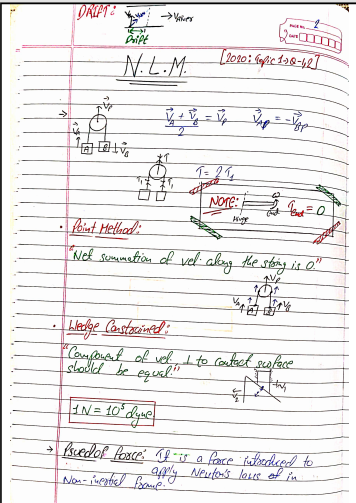 DRIFT:
→Vriver
Drift
PAGE No. 2
DATE
[2020: Topic 1→Q-42]
N.L.M.
V⃗A + V⃗B / 2 = V⃗P
V⃗AP = -V⃗BP
VP
VA
A
B
VB
T
T1 T1
T = 2T1
NOTE:
Hinge
Tend = 0
• Point Method:
"Net summation of vel. along the string is 0."
VP
VA
VB
A
B
• Wedge Constrained:
"Component of vel. ⊥ to contact surface
should be equal."
V1
V2
1N = 10⁵ dyne
→ Psuedof force: It is a force introduced to
apply Neuton's laws of in
Non-inertial frame.